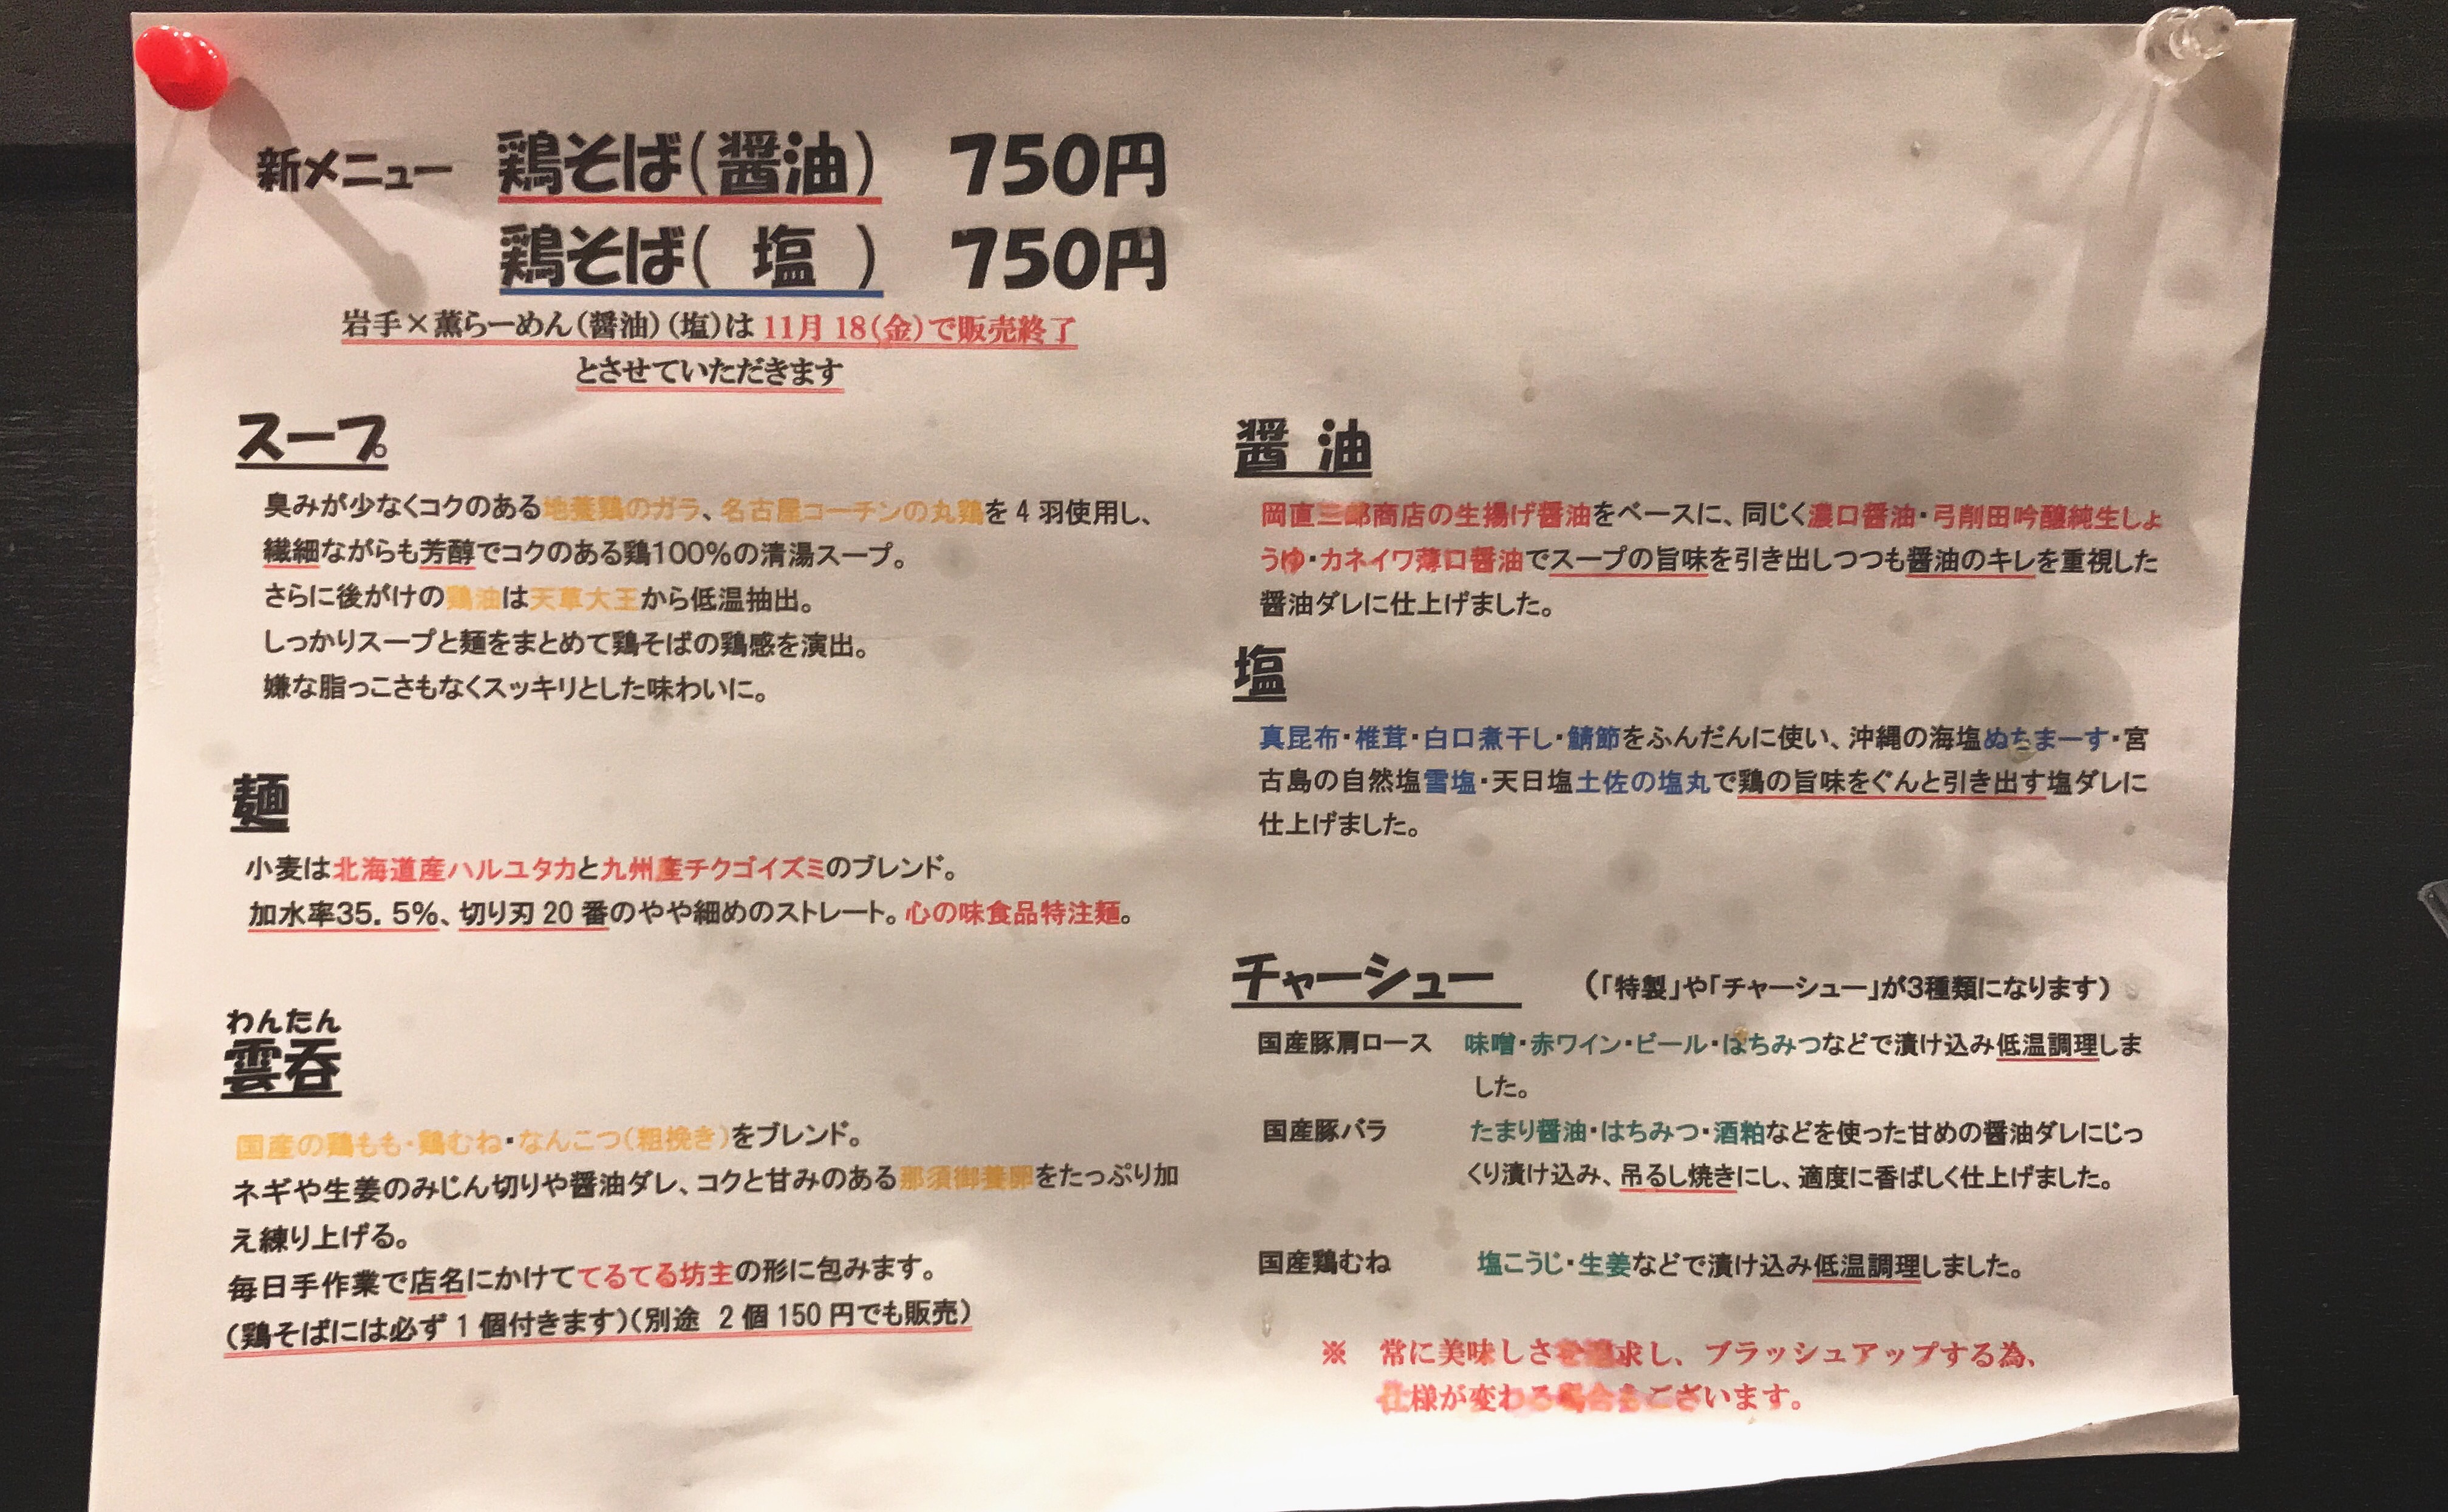 新メニュー 鶏そば(醤油) 750円
鶏そば( 塩 ) 750円
岩手×薫らーめん(醤油)(塩)は 11月 18(金)で販売終了
とさせていただきます
スープ
臭みが少なくコクのある地養鶏のガラ、名古屋コーチンの丸鶏を 4 羽使用し、
繊細ながらも芳醇でコクのある鶏100%の清湯スープ。
さらに後がけの鶏油は天草大王から低温抽出。
しっかりスープと麺をまとめて鶏そばの鶏感を演出。
嫌な脂っこさもなくスッキリとした味わいに。
麺
小麦は北海道産ハルユタカと九州産チクゴイズミのブレンド。
加水率35.5%、切り刃 20 番のやや細めのストレート。心の味食品特注麺。
わんたん
雲呑
国産の鶏もも・鶏むね・なんこつ(粗挽き)をブレンド。
ネギや生姜のみじん切りや醤油ダレ、コクと甘みのある那須御養卵をたっぷり加
え練り上げる。
毎日手作業で店名にかけててるてる坊主の形に包みます。
(鶏そばには必ず 1 個付きます)(別途 2 個 150 円でも販売)
醤 油
岡直三郎商店の生揚げ醤油をベースに、同じく濃口醤油・弓削田吟醸純生しょ
うゆ・カネイワ薄口醤油でスープの旨味を引き出しつつも醤油のキレを重視した
醤油ダレに仕上げました。
塩
真昆布・椎茸・白口煮干し・鯖節をふんだんに使い、沖縄の海塩ぬちまーす・宮
古島の自然塩雪塩・天日塩土佐の塩丸で鶏の旨味をぐんと引き出す塩ダレに
仕上げました。
チャーシュー (「特製」や「チャーシュー」が3種類になります)
国産豚肩ロース 味噌・赤ワイン・ビール・はちみつなどで漬け込み低温調理しま
した。
国産豚バラ たまり醤油・はちみつ・酒粕などを使った甘めの醤油ダレにじっ
くり漬け込み、吊るし焼きにし、適度に香ばしく仕上げました。
国産鶏むね 塩こうじ・生姜などで漬け込み低温調理しました。
※ 常に美味しさを追求し、ブラッシュアップする為、
仕様が変わる場合もございます。